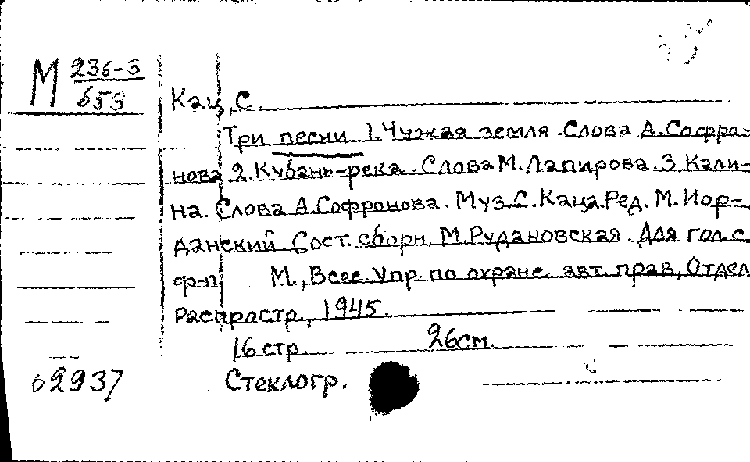 М 236-3
653
Кац, С.
Три песни 1. Чужая земля. Слова А. Софро-
нова 2. Кубань-река. Слова М. Лапирова. 3. Кали-
на. Слова А. Софронова. Муз. С. Каца. Ред. М. Иор-
данский Сост. сборн. М. Рудановская. Для гол. с
ф-п М., Всес. Упр. по охране авт. прав, Отдел
Распростр., 1945.
16 стр. 26см.
02937 Стеклогр.